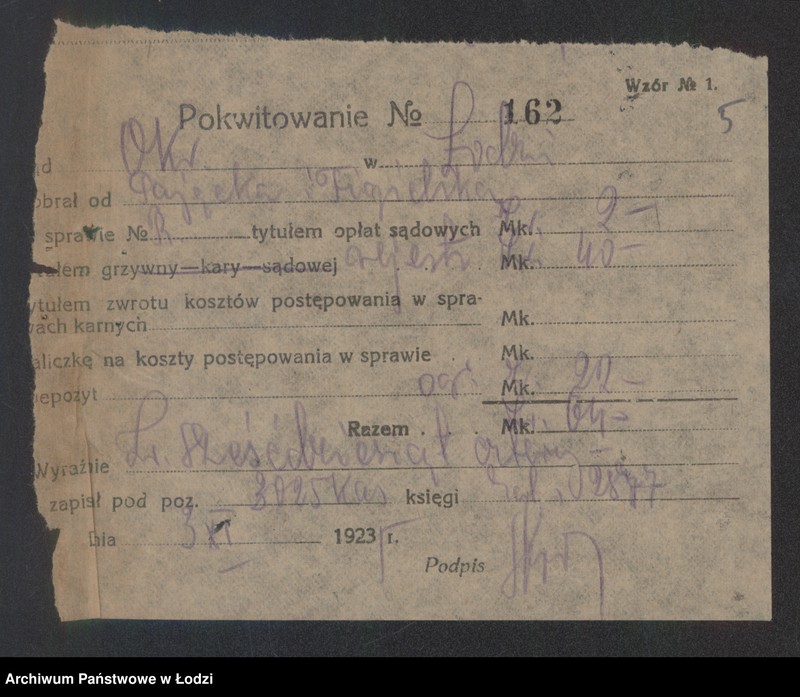 Wzór № 1.
5
Pokwitowanie № 162
ąd Okr. w Łodzi
obrał od
sprawie № R tytułem opłat sądowych Mk. Zł. 2 –
tułem grzywny—kary—sądowej rejestr. Mk. Zł. 40 –
ytułem zwrotu kosztów postępowania w spra-
wach karnych Mk.
aliczkę na koszty postępowania w sprawie . Mk.
epozyt ogł. Mk. Zł. 22 –
Razem . . . Mk. Zł. 64 –
Wyraźnie Zł. sześćdziesiąt cztery –
zapisł pod poz. 3025 kas księgi
Dnia 3 XI 1923 r.
Podpis
Archiwum Państwowe w Łodzi